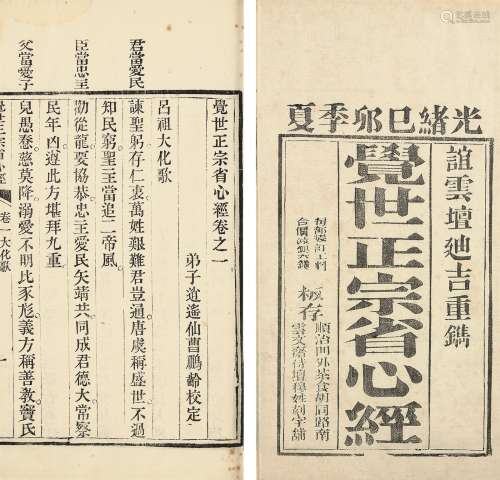 光緒已卯季夏
誼雲壇廸吉重鐫
覺世正宗省心經
板存
順治門外菜食胡同路南
雲文齋
姓刻字舖
覺世正宗省心經卷之一
弟子逍遙仙曹鵬齡校定
呂祖大化歌
君當愛民
諫聖躬存仁裏萬姓艱難君豈通唐虞稱盛世不過
知民窮聖王當追二帝風
臣當忠主
勸從龍要協恭忠主愛民矢靖共同成君德大常察
民年凶遑此方堪拜九重
父當愛子
兒愚蠢慈莫降溺愛不明比家尨義方稱善教竇氏
覺世正宗省心經
卷一大化歌
一